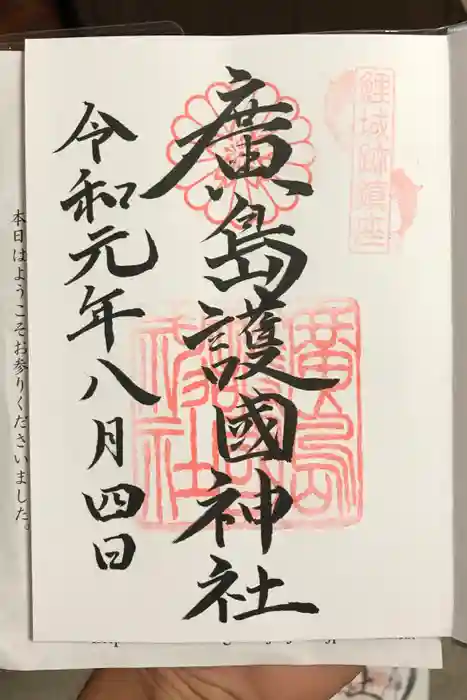 鯉城跡鎮座
廣島護國神社
廣島護國神社
令和元年八月四日
本日はようこそお参りくださいました。